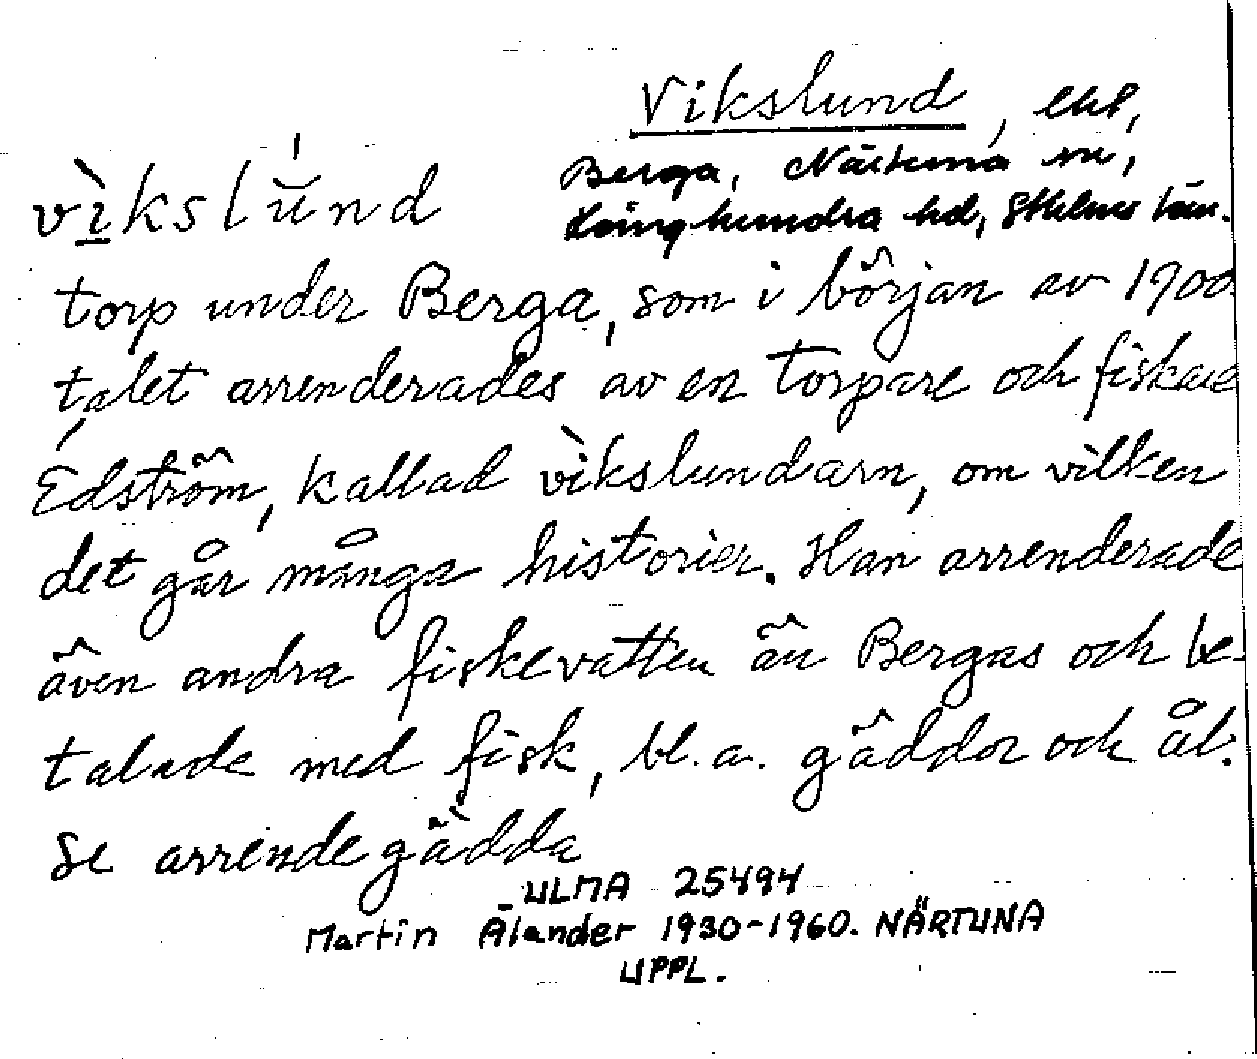 Vikslund, lht,
Berga, Närtuna sn,
Långhundra hd, Sthlms län.
vìkslúnd
torp under Berga, som i början av 1900
talet arrenderades av en torpare och fiskare
Edström, kallad vìkslundarn, om vilken
det går många historier. Han arrenderade
även andra fiskevatten än Bergas och be-
talade med fisk, bl.a. gäddor och ål.
Se arrendegädda
ULMA 25494
Martin Ålander 1930-1960. NÄRTUNA
UPPL.